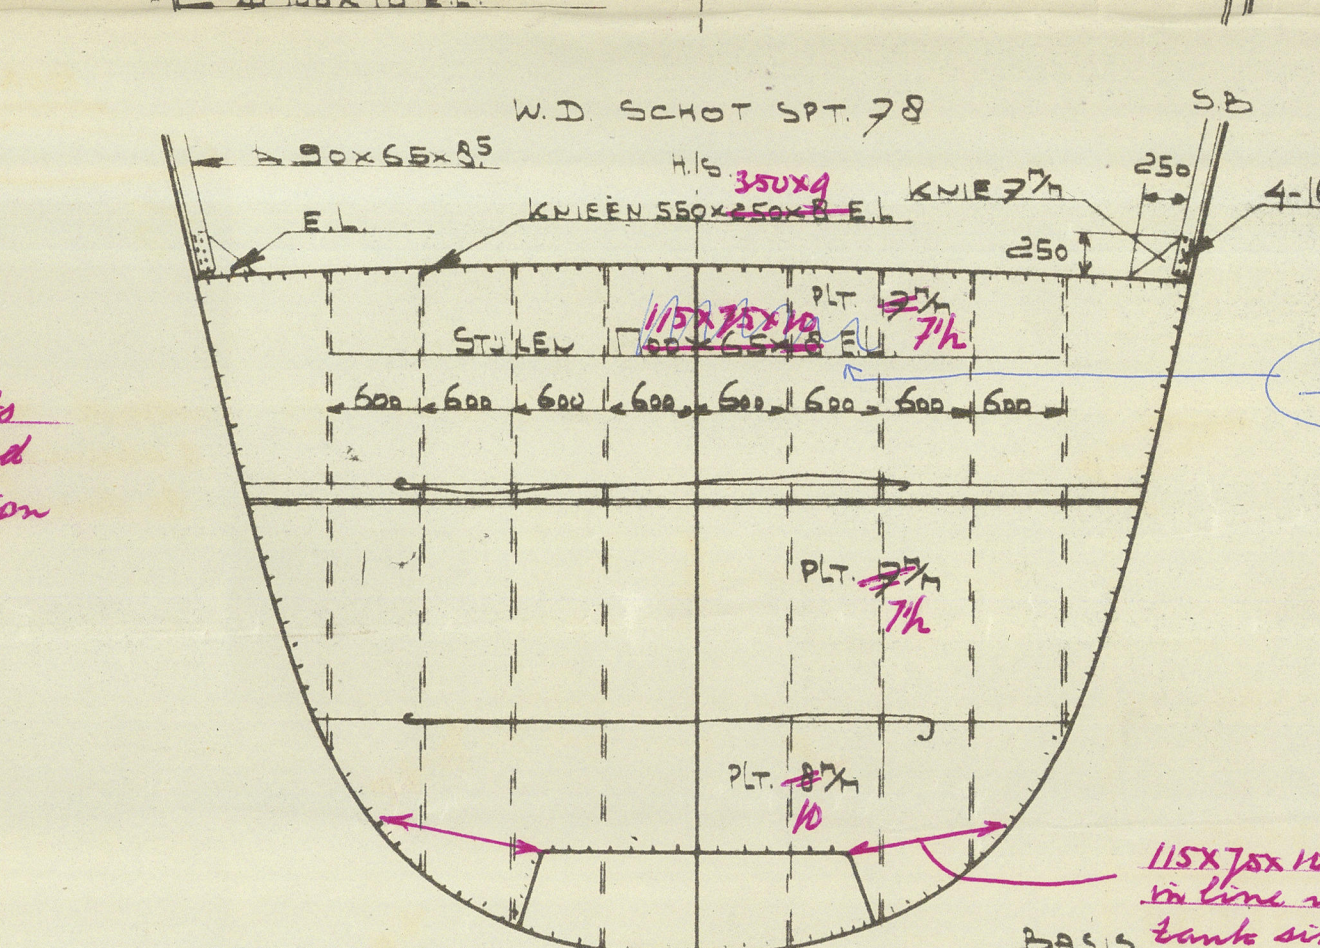 W.D. SCHOT SPT. 78
S.B
90x65x8⁵
H/S.
350x9
KNIE 7 m/m
250
4-16
KNIEËN 550x250x8 E.L
E.L.
250
PLT. 7 m/m
7½
115x75x10
STIJLEN 100x65x8 E.L.
600 600 600 600 600 600 600 600
s
d
on
PLT. 7 m/m
7½
PLT. 8 m/m
10
115x75x10
in line
tank si
BASIS